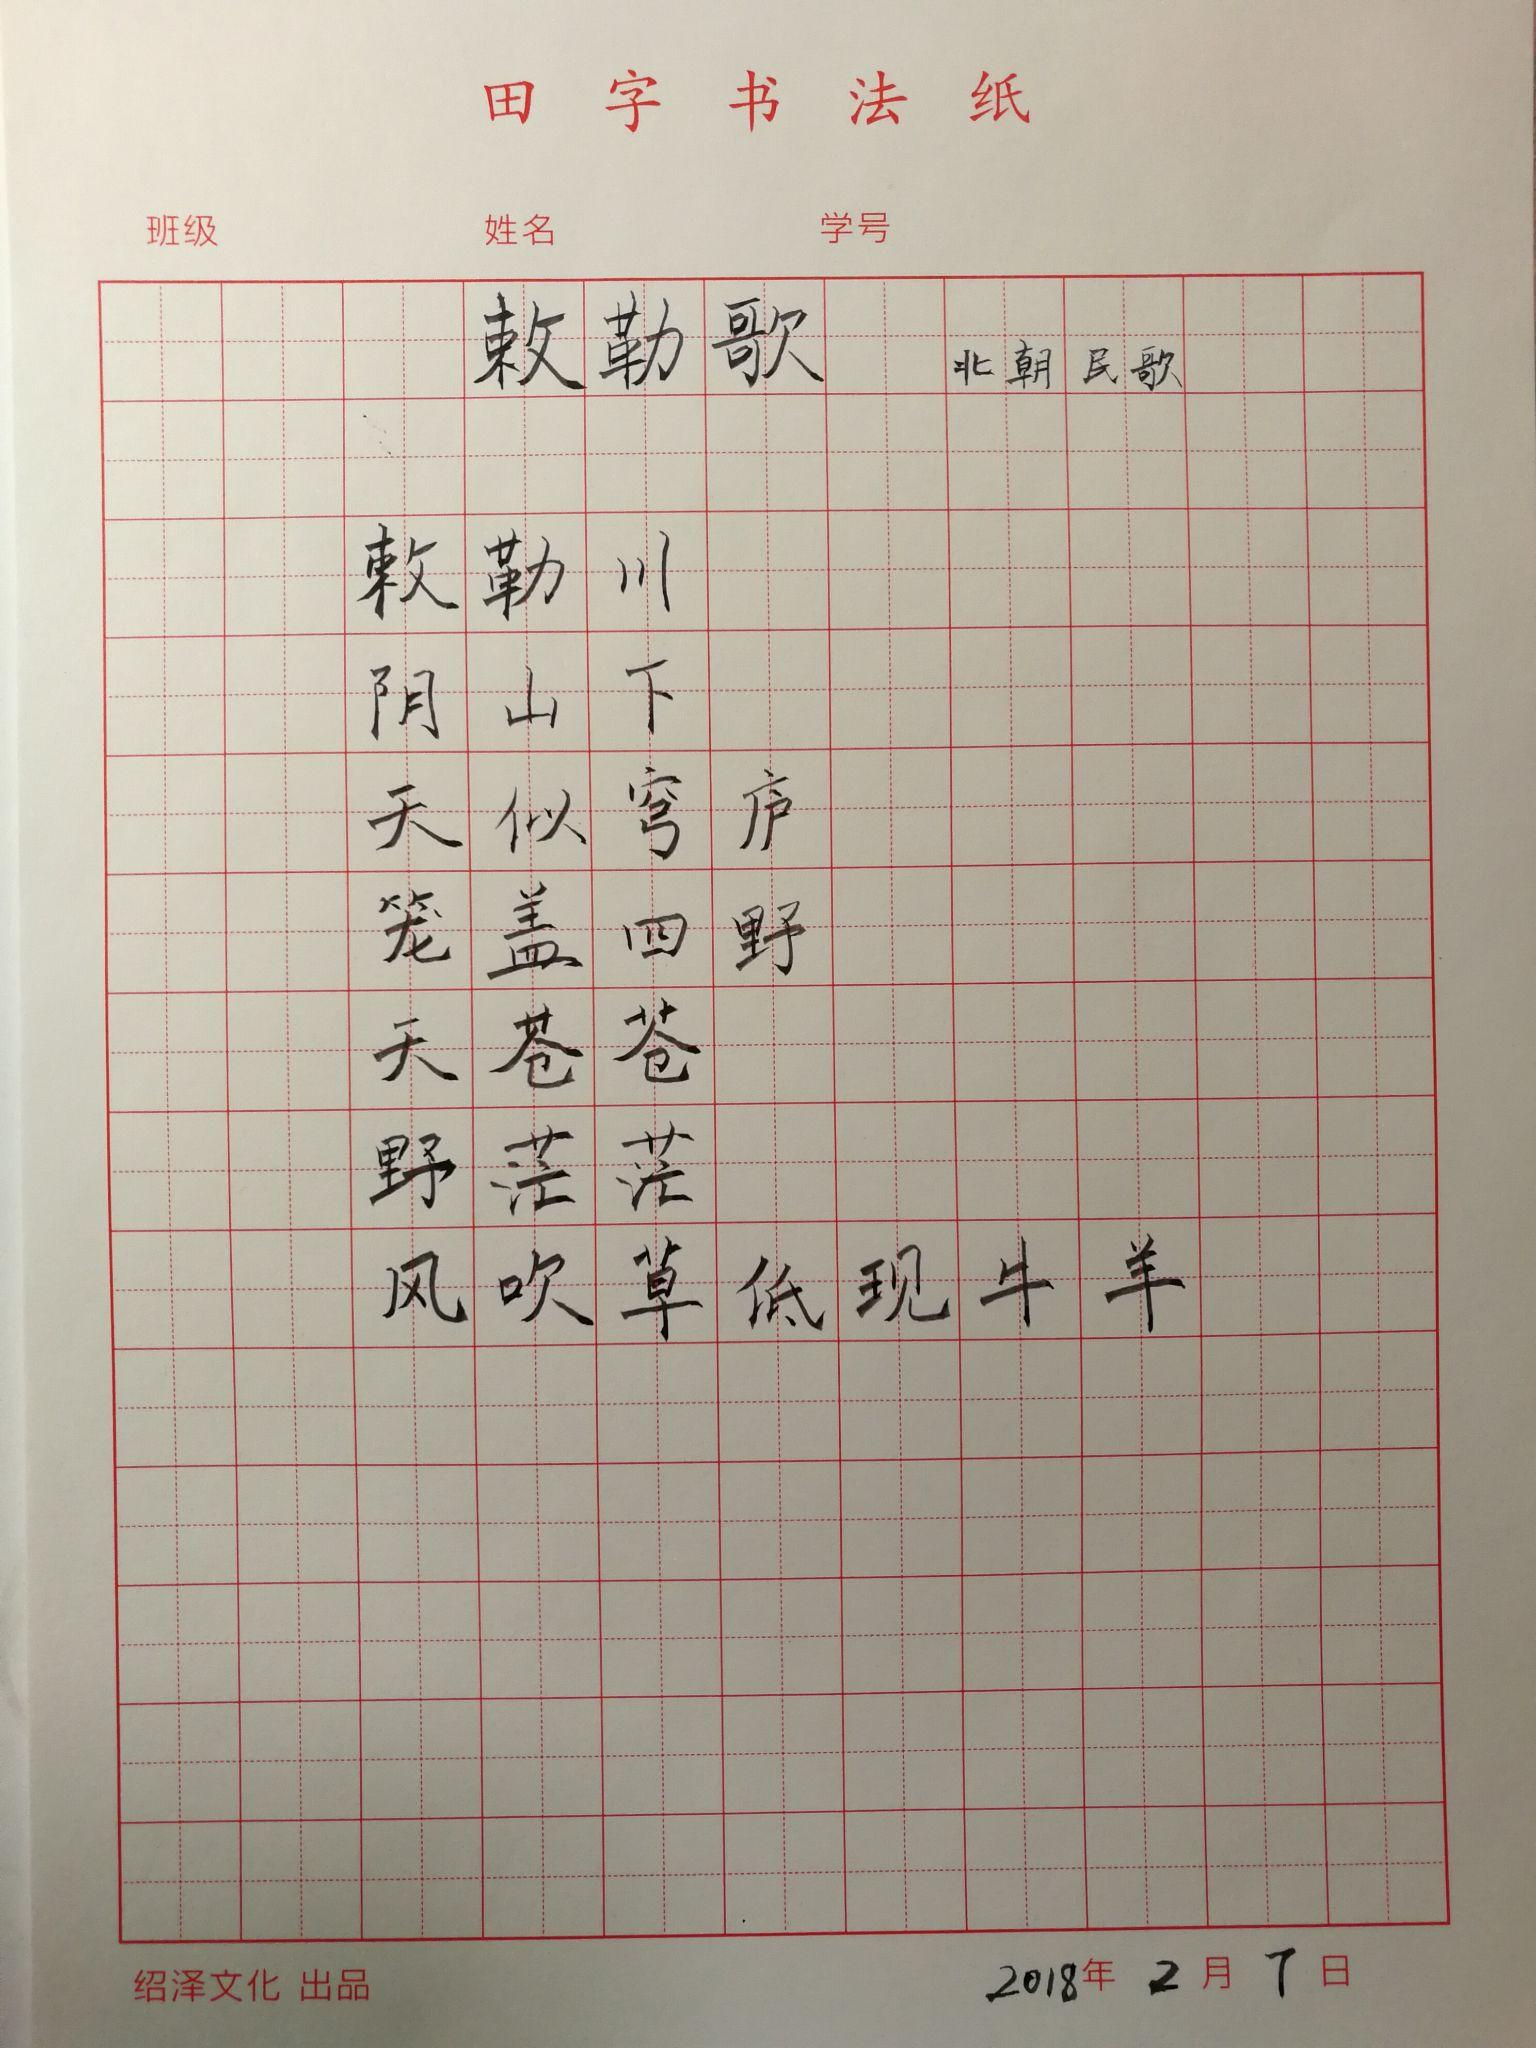 田字书法纸
班级 姓名 学号
敕勒歌 北朝民歌
敕勒川
阴山下
天似穹庐
笼盖四野
天苍苍
野茫茫
风吹草低现牛羊
绍泽文化 出品 2018年2月7日